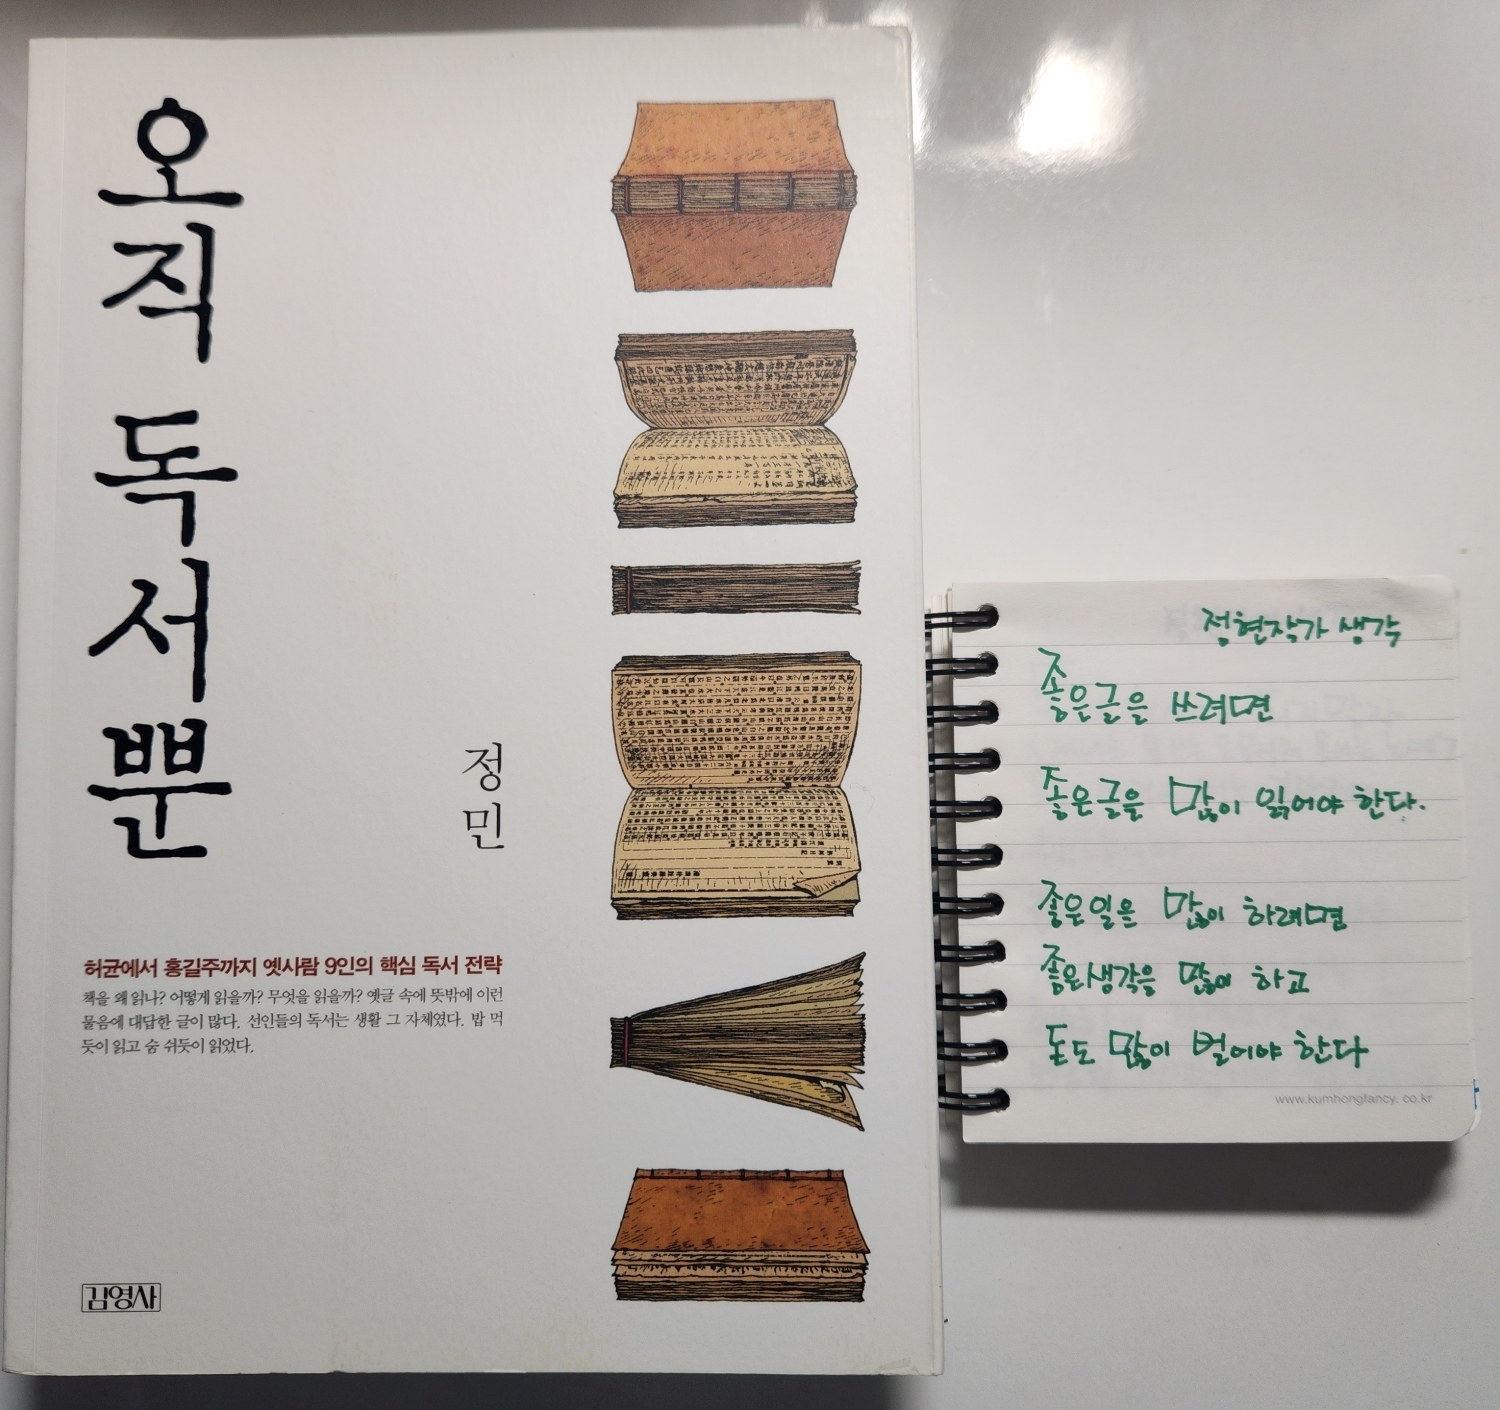 오직 독서뿐
정민
허균에서 홍길주까지 옛사람 9인의 핵심 독서 전략
책을 왜 읽나? 어떻게 읽을까? 무엇을 읽을까? 옛글 속에 뜻밖에 이런
물음에 대답한 글이 많다. 선인들의 독서는 생활 그 자체였다. 밥 먹
듯이 읽고 숨 쉬듯이 읽었다.
김영사
정현작가 생각
좋은글을 쓰려면
좋은글을 많이 읽어야 한다.
좋은일을 많이 하려면
좋은생각을 많이 하고
돈도 많이 벌어야 한다
www.kumhongfancy.co.kr